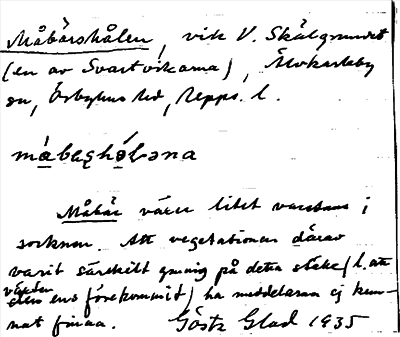 Måbärshålen, vik V. Skälgrundet
(en av Svartvikarna), Älvkarleby
sn, Örbyhus hd, Upps. l.
må̀baʂhɷ̀lǝna
Måbär växer litet varstans i
socknen. Att vegetationen därav
varit särskilt ymnig på detta ställe (l. att
växten
ens förekommit) ha meddelaren ej kun-
nat finna. Gösta Glad 1935